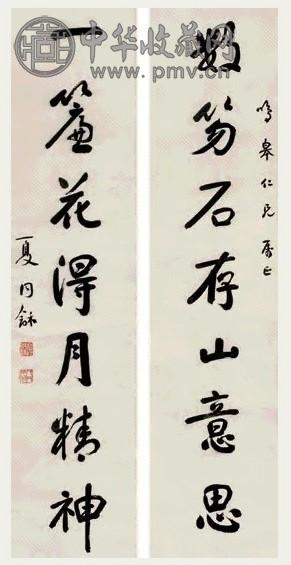 中华收藏网
www.pmv.cn
鳴皋仁兄属正
數笏石存山意思
一簾花得月精神
夏同龢